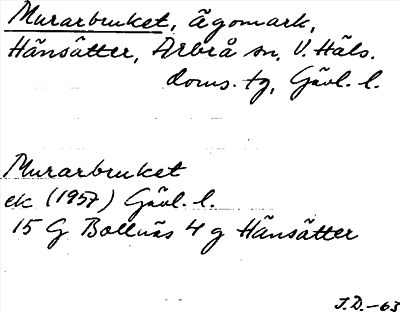 Murarbruket, ägomark,
Hänsätter, Arbrå sn, V. Häls.
doms. tg, Gävl. l.
Murarbruket
ek (1957) Gävl. l.
15 G Bollnäs 4 g Hänsätter
J.D.-63